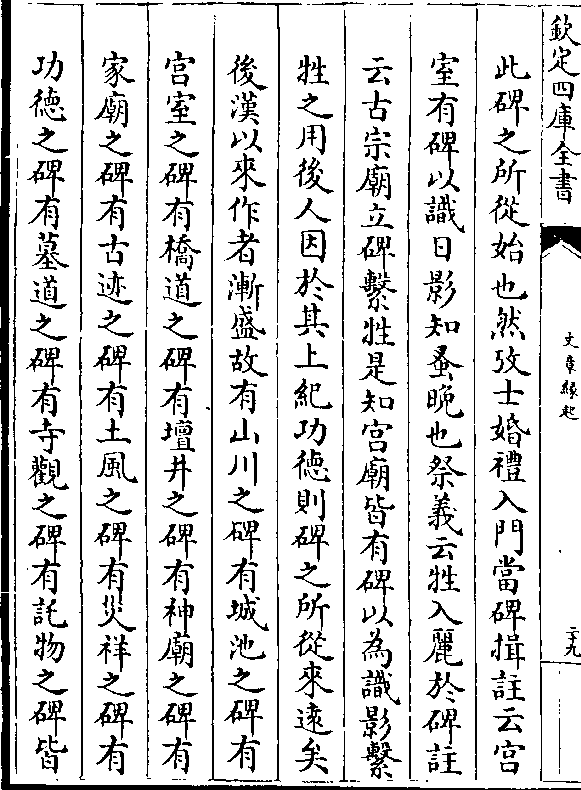 欽定四庫全書
文章緣起
二十九
此碑之所從始也然攷士婚禮入門當碑揖註云宫
室有碑以識日影知蚤晚也祭義云牲入麗於碑註
云古宗廟立碑繫牲是知宫廟皆有碑以為識影繫
牲之用後人因於其上紀功德則碑之所從來遠矣
後漢以來作者漸盛故有山川之碑有城池之碑有
宫室之碑有橋道之碑有壇井之碑有神廟之碑有
家廟之碑有古迹之碑有土風之碑有災祥之碑有
功德之碑有墓道之碑有寺觀之碑有託物之碑皆